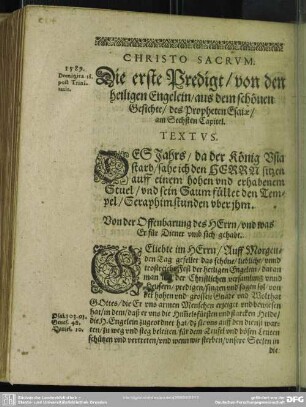 CHRISTO SACRVM.
1589.
Dominica 18.
post Trini-
tatis.
Die erste Predigt / von den
heiligen Engelein / aus dem schönen
Gesichte / des Propheten Esaiæ /
am Sechsten Capitel.
TEXTVS.
DES Jahrs / da der König Vsia
starb / sahe ich den HERRN sitzen
auff einem hohen vnd erhabenem
Stuel / vnd sein Saum füllet den Tem-
pel / Seraphim stunden vber jhm.
Von der Offenbarung des HErrn / vnd was
Er für Diener vmb sich gehabt.
GEliebte im HErrn / Auff Morgen-
den Tag gefellet das schöne / liebliche / vnnd
trostreiche Fest der heiligen Engelein / daran
man in der Christlichen versamlung
predigen / singen vnd sagen sol / von
der hohen vnd grossen Gnade vnd Wolthat
GOttes / die Er vns armen Menschen erzeiget vnd bewiesen
hat / in dem / daß er vns die Himelsfürsten vnd starcken Helde /
die H. Engelein zugeordnet hat / daß sie vns auff den
ten / zu weg vnd steg beleiten / für dem Teufel vnd bösen Leuten
schützen vnd vertreten / vnd wenn wir sterben / vnsere Seelen in
die